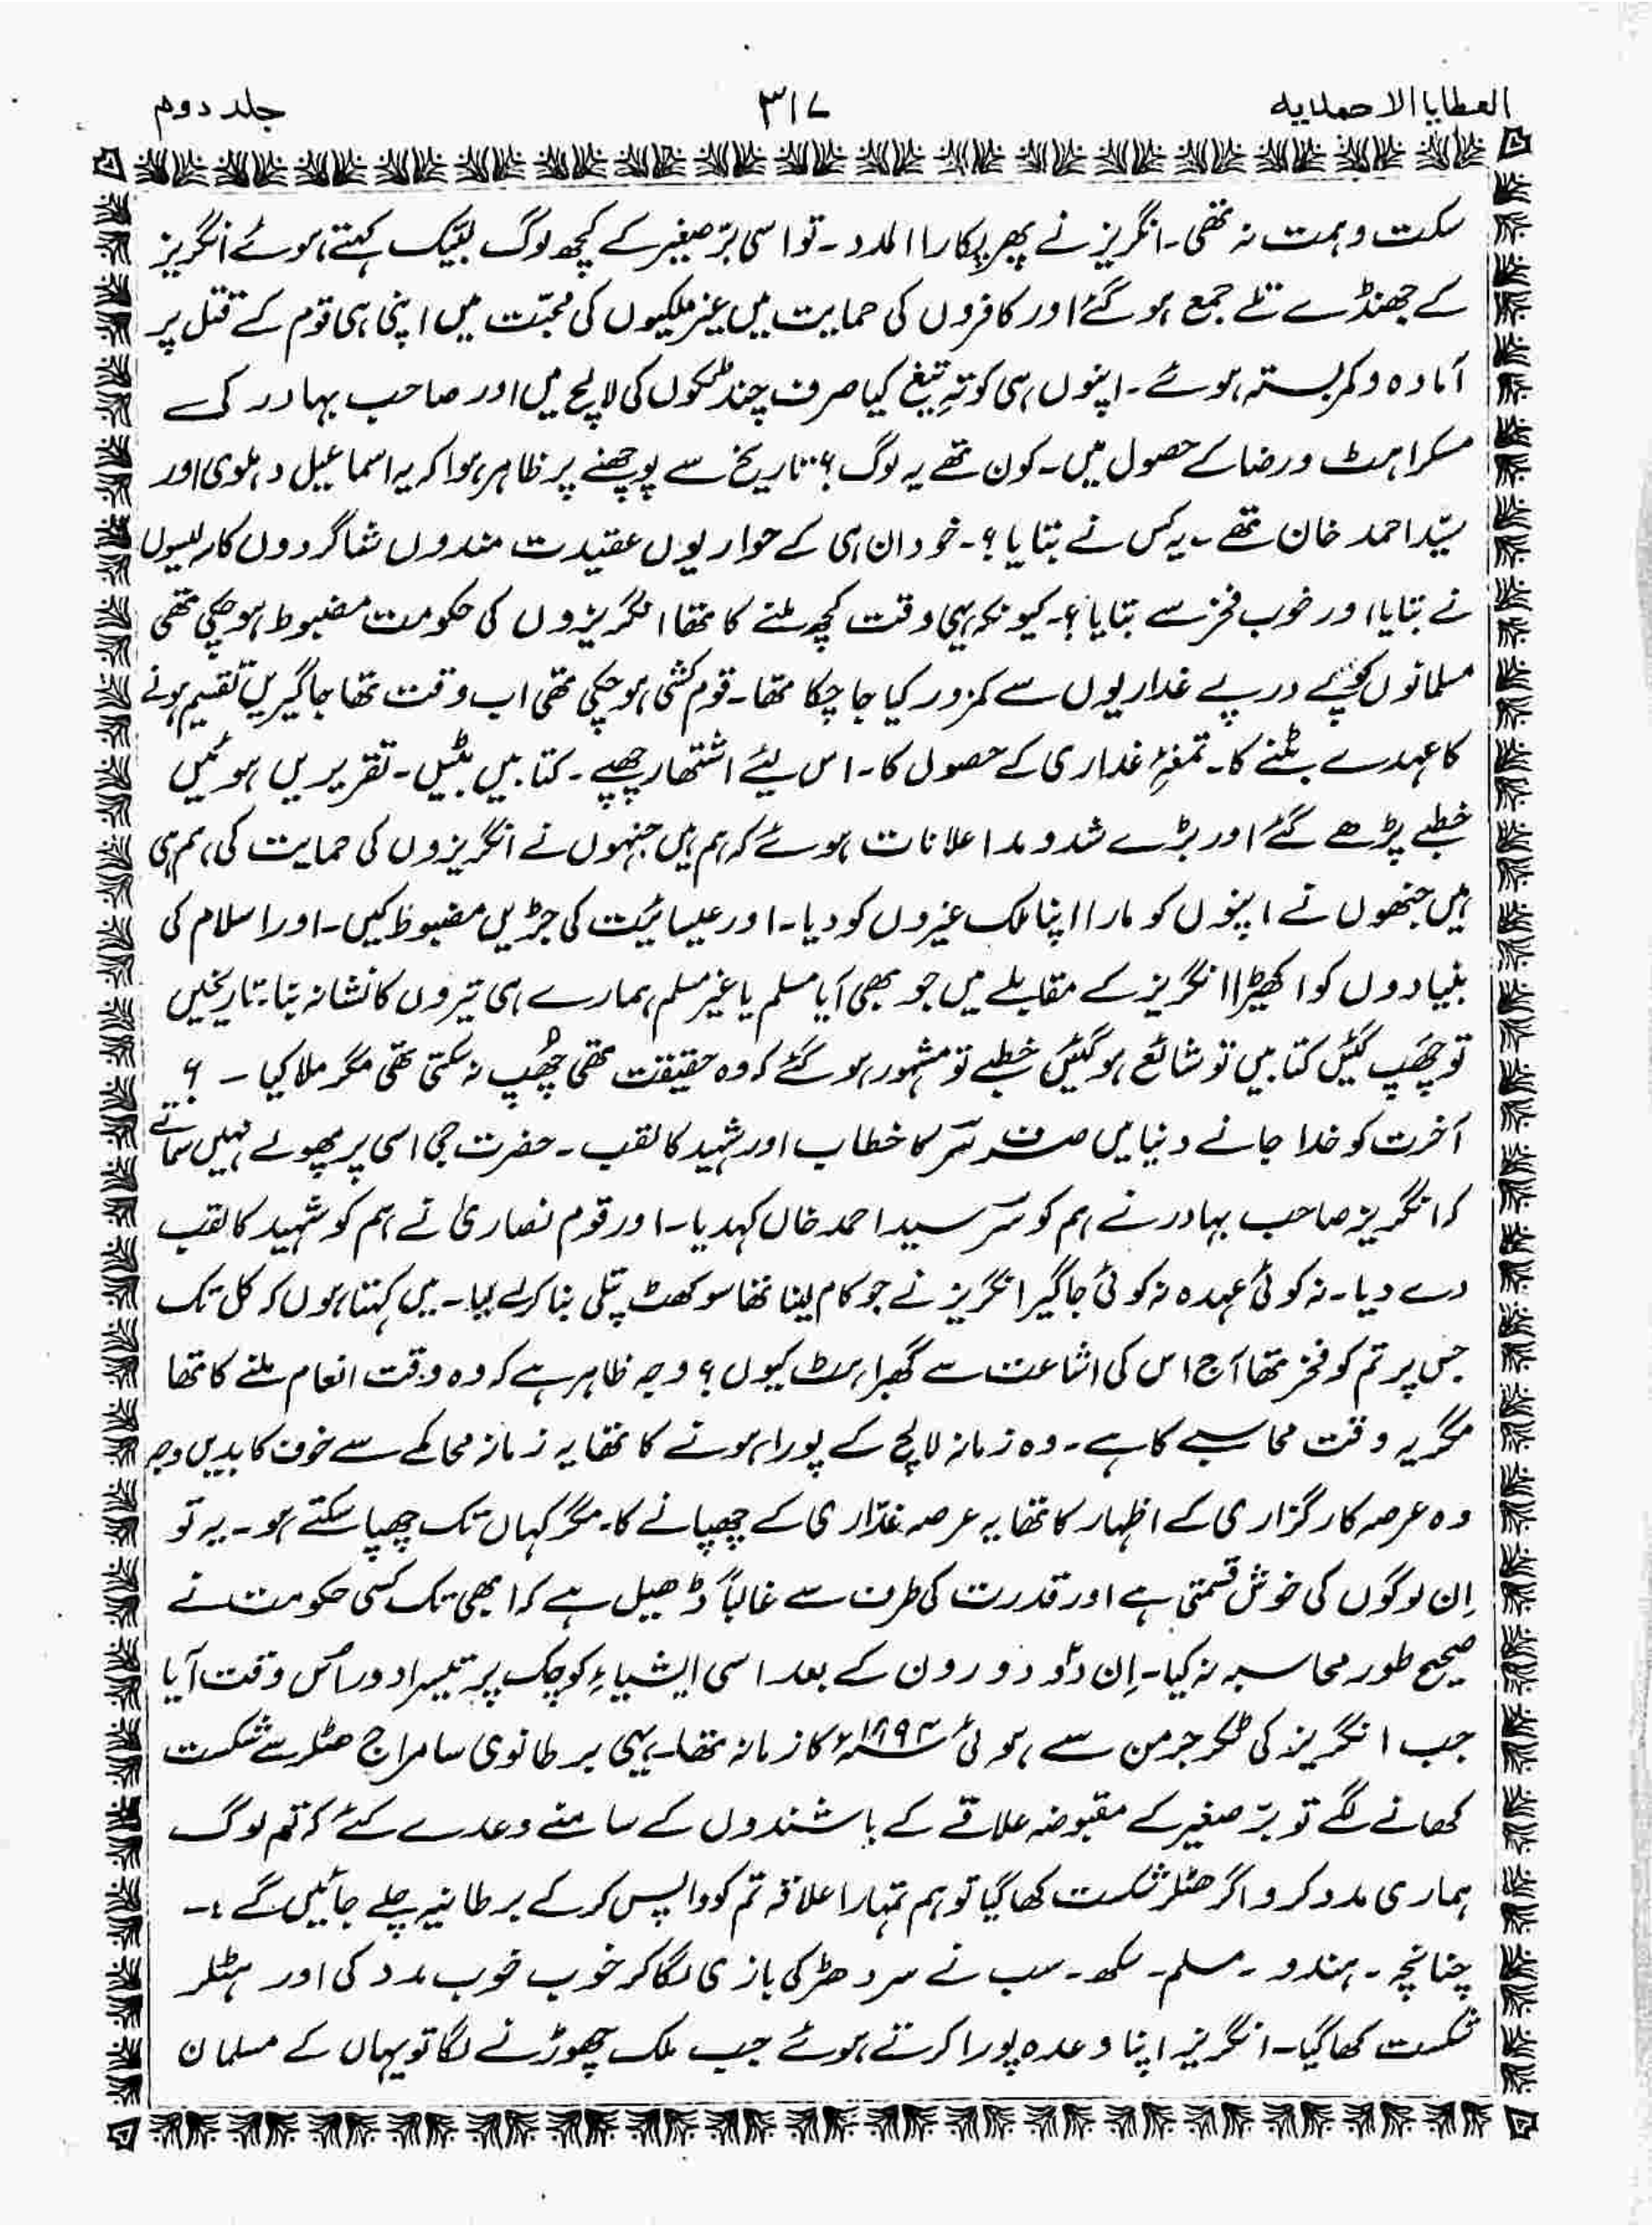 العطایا الاحمدیه ۳۱۷ جلد دوم
سکت و ہمت نہ تھی۔ انگریز نے پھر پکارا المدد۔ تو اسی برّصغیر کے کچھ لوگ لبّیک کہتے ہوئے انگریز
کے جھنڈے تلے جمع ہو گئے اور کافروں کی حمایت میں غیر ملکیوں کی محبّت میں اپنی ہی قوم کے قتل پر
آمادہ و کمربستہ ہوئے۔ اپنوں ہی کو تہِ تیغ کیا صرف چند ٹکوں کی لالچ میں اور صاحب بہادر کی
مسکراہٹ و رضا کے حصول میں۔ کون تھے یہ لوگ؟ تاریخ سے پوچھنے پر ظاہر ہوا کہ یہ اسماعیل دہلوی اور
سیّد احمد خان تھے۔ یہ کس نے بتایا؟۔ خود ان ہی کے حواریوں عقیدت مندوں شاگردوں کاسہ لیسوں
نے بتایا اور خوب فخر سے بتایا؟۔ کیونکہ یہی وقت کچھ ملنے کا تھا انگریزوں کی حکومت مضبوط ہو چکی تھی
مسلمانوں کو پے در پے غداریوں سے کمزور کیا جا چکا تھا۔ قوم کشی ہو چکی تھی اب وقت تھا جاگیریں تقسیم ہونے
کا عہدے بٹنے کا۔ تمغۂ غداری کے حصول کا۔ اس لیئے اشتہار چھپے۔ کتابیں بٹیں۔ تقریریں ہوئیں
خطبے پڑھے گئے اور بڑے شدومد اعلانات ہوئے کہ ہم ہیں جنہوں نے انگریزوں کی حمایت کی، ہم ہی
ہیں جنھوں نے اپنوں کو مارا اپنا ملک غیروں کو دیا۔ اور عیسائیت کی جڑیں مضبوط کیں۔ اور اسلام کی
بنیادوں کو اکھیڑا انگریز کے مقابلے میں جو بھی آیا مسلم یا غیر مسلم ہمارے ہی تیروں کا نشانہ بنا۔ تاریخیں
تو چھَپ گئیں کتابیں تو شائع ہو گئیں خطبے تو مشہور ہو گئے کہ وہ حقیقت تھی چھُپ نہ سکتی تھی مگر ملا کیا ۔ ؟
آخرت کو خدا جانے دنیا میں صرف سَر کا خطاب اور شہید کا لقب۔ حضرت جی اسی پر پھولے نہیں سماتے
کہ انگریز صاحب بہادر نے ہم کو سَر سید احمد خاں کہدیا۔ اور قوم نصاریٰ نے ہم کو شہید کا لقب
دے دیا۔ نہ کوئی عہدہ نہ کوئی جاگیر انگریز نے جو کام لینا تھا سو کٹھ پتلی بنا کر لے لیا۔ میں کہتا ہوں کہ کل تک
جس پر تم کو فخر تھا آج اس کی اشاعت سے گھبراہٹ کیوں؟ وجہ ظاہر ہے کہ وہ وقت انعام ملنے کا تھا
مگر یہ وقت محاسبے کا ہے۔ وہ زمانہ لالچ کے پورا ہونے کا تھا یہ زمانہ محاکمے سے خوف کا بدیں وجہ
وہ عرصہ کارگزاری کے اظہار کا تھا یہ عرصہ غدّاری کے چھپانے کا۔ مگر کہاں تک چھپا سکتے ہو۔ یہ تو
اِن لوگوں کی خوش قسمتی ہے اور قدرت کی طرف سے غالباً ڈھیل ہے کہ ابھی تک کسی حکومت نے
صحیح طور محاسبہ نہ کیا۔ اِن دو دوروں کے بعد اسی ایشیاءِ کوچک پر تیسرا دور اُس وقت آیا
جب انگریز کی ٹکر جرمن سے ہوئی ۱۸۹۳ء کا زمانہ تھا۔ یہی برطانوی سامراج ھٹلر سے شکست
کھانے لگے تو برّصغیر کے مقبوضہ علاقے کے باشندوں کے سامنے وعدے کئے کہ تم لوگ
ہماری مدد کرو اگر ھٹلر شکست کھا گیا تو ہم تمہارا علاقہ تم کو واپس کر کے برطانیہ چلے جائیں گے ۔
چنانچہ۔ ہندو۔ مسلم۔ سکھ۔ سب نے سر دھڑ کی بازی لگا کر خوب خوب مدد کی اور ہٹلر
شکست کھا گیا۔ انگریز اپنا وعدہ پورا کرتے ہوئے جب ملک چھوڑنے لگا تو یہاں کے مسلمان